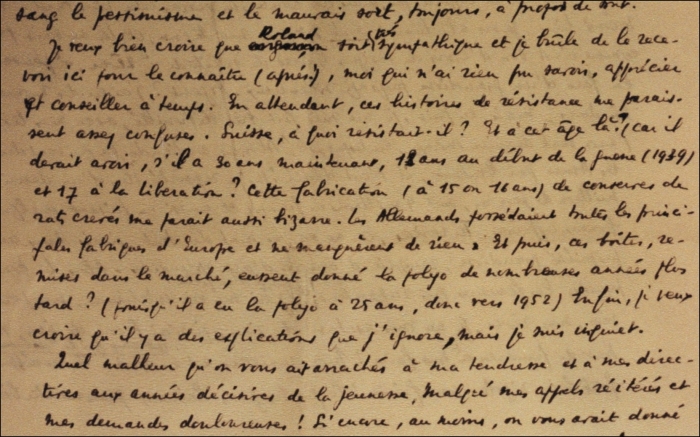 sang le pessimisme et le mauvais sort, toujours, à propos de tout.
Je veux bien croire que Roland soit très sympathique et je brûle de le rece-
voir ici pour le connaître (après!), moi qui n'ai rien pu savoir, apprécier
et conseiller à temps. En attendant, ces histoires de résistance me parais-
sent assez confuses. Suisse, à quoi résistait-il? Et à cet âge là? (car il
devait avoir, s'il a 30 ans maintenant, 12 ans au début de la guerre (1939)
et 17 à la libération? Cette fabrication (à 15 ou 16 ans) de conserves de
rats crevés me parait aussi bizarre. Les Allemands possédaient toutes les princi-
pales fabriques d'Europe et ne manquèrent de rien. Et puis, ces boîtes, re-
mises dans le marché, eussent donné la polyo de nombreuses années plus
tard? (puisqu'il a eu la polyo à 25 ans, donc vers 1952) Enfin, je veux
croire qu'il y a des explications que j'ignore, mais je suis inquiet.
Quel malheur qu'on vous ait arrachés à ma tendresse et à mes direc-
tives aux années décisives de la jeunesse, malgré mes appels réitérés et
mes demandes douloureuses! Si encore, au moins, on vous avait donné